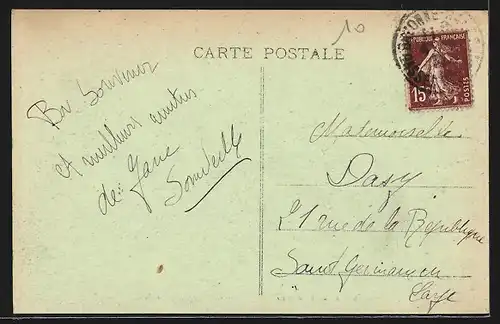 10
CARTE POSTALE
RÉPUBLIQUE FRANÇAISE
15
POSTES
Bon Souvenir
et meilleurs amitiés
de Jane
Mademoiselle
Dasy
21 rue de la République
Saint Germain en
Laye